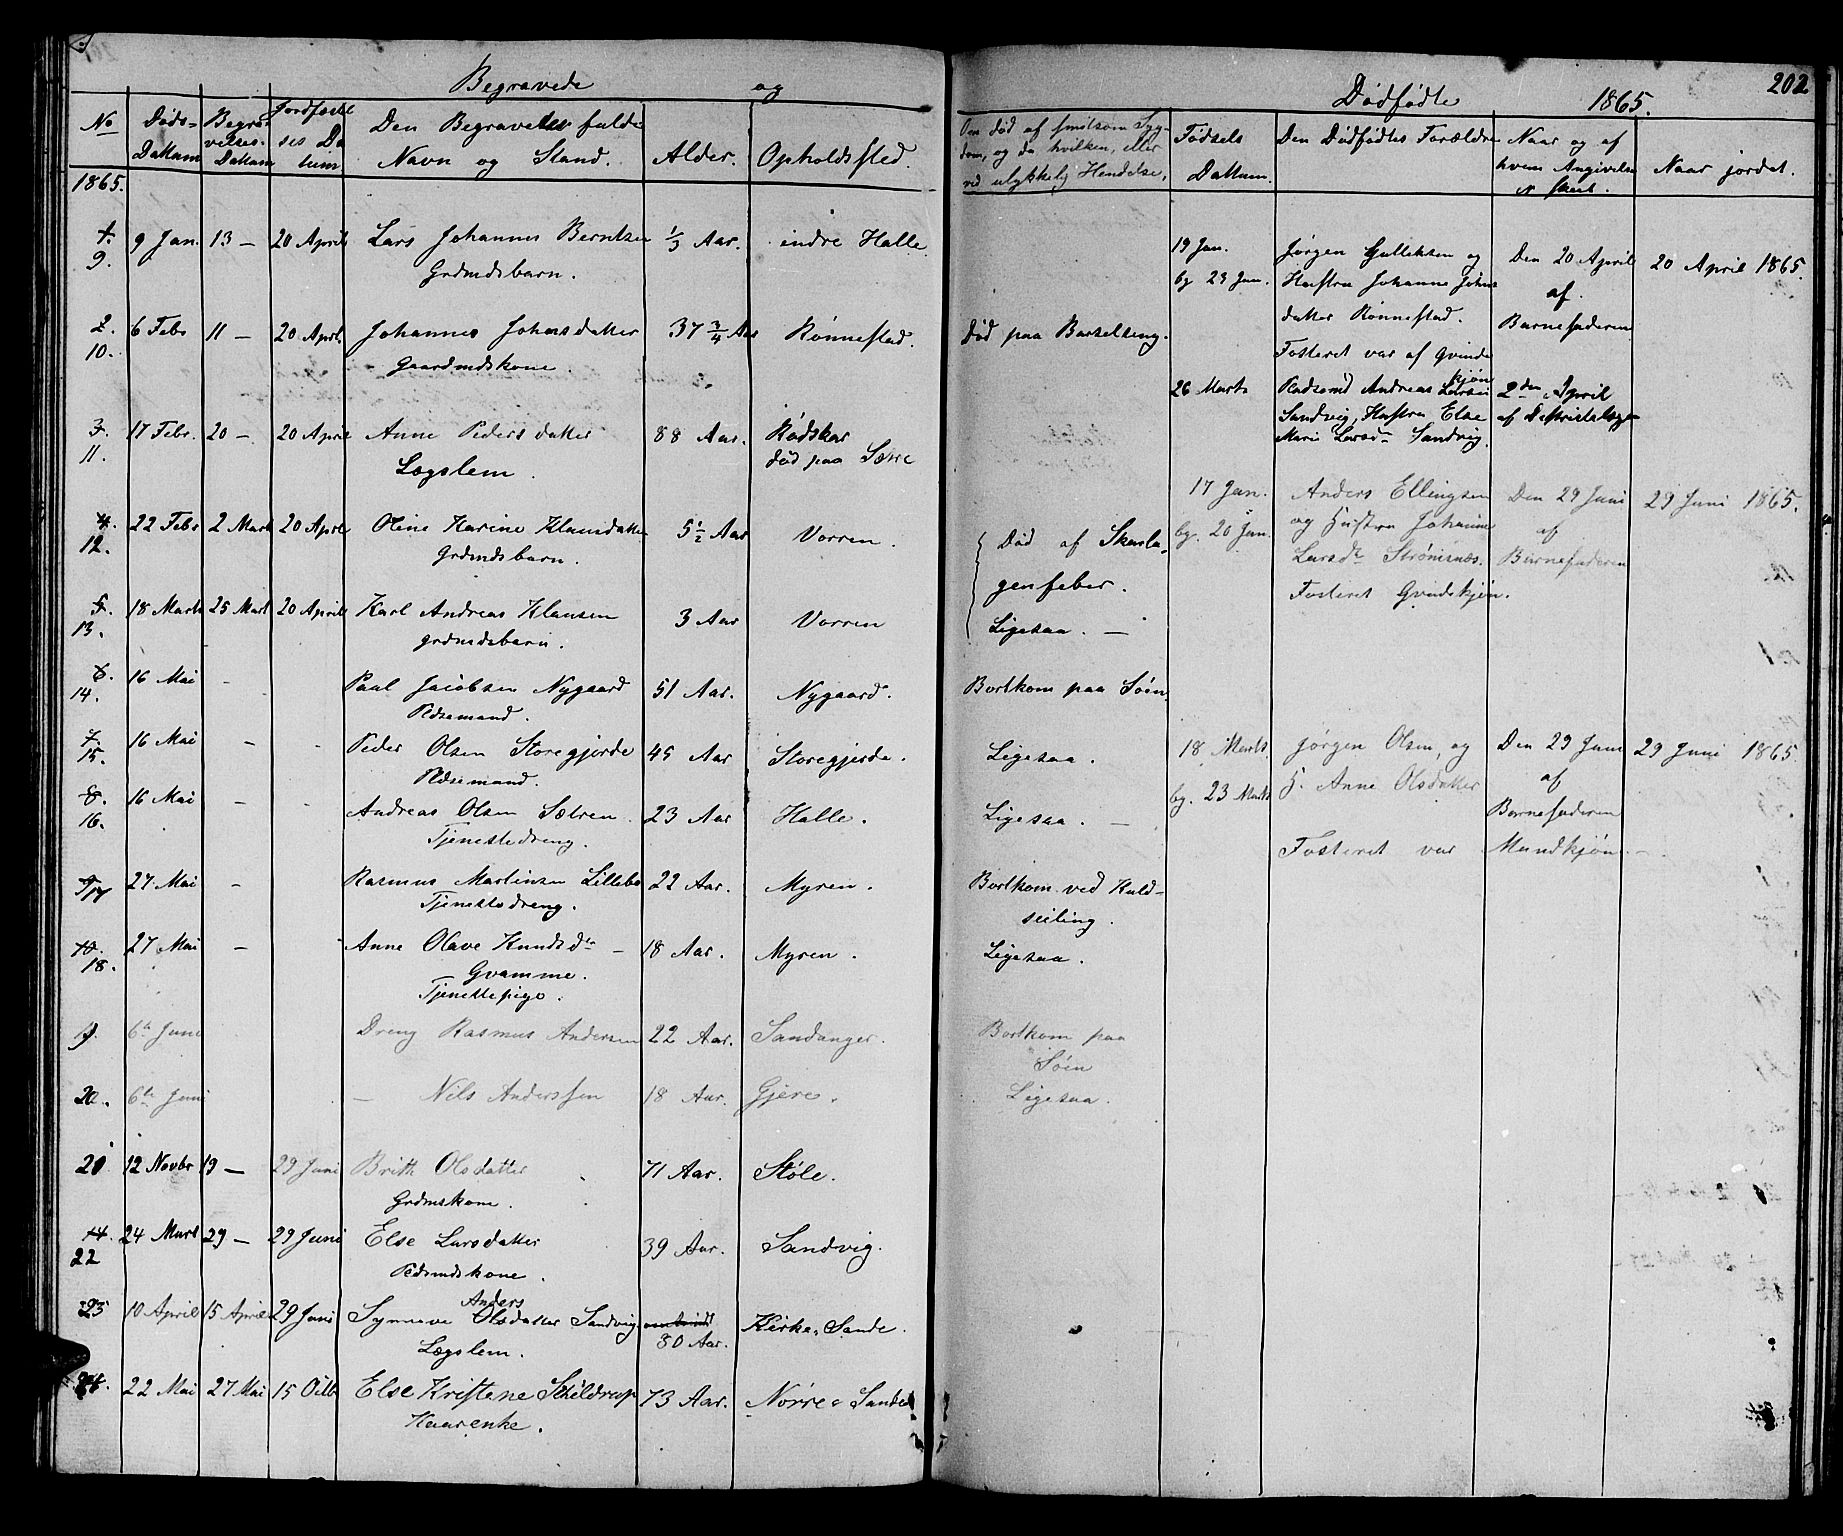 Begravede og
No
Døds-Dattum
Begravelses-Dattum
Jordfæstelses Dattum
Den Begravedes fulde Navn og Stand.
Alder.
Opholdssted.
1865.
1. 9. 9 Jan. 13 — 20 April Lars Johannes Berntsen 1/3 Aar. indre Halle.
Grdmdsbarn.
2. 10. 6 Febr 11 — 20 April Johannes Johnsdatter 37 3/4 Aar Rønnestad.
Gaardmdskone.
3. 11. 17 Febr. 20 — 20 April Anne Peders datter 88 Aar. Rødskar
Lægslem. død paa Sætre
4. 12. 22 Febr 2 Marts 20 April Oline Karine Klausdatter 5 1/2 Aar Vorren.
Grdmdsbarn.
5. 13. 18 Marts 25 Marts 20 April Karl Andreas Klausen 3 Aar Vorren
grdmdsbarn.
6. 14. 16 Mai - Paal Jacobsen Nygaard 51 Aar. Nygaard.
Pdsemand.
7. 15. 16 Mai - - Peder Olsen Storegjerde 45 Aar Storegjerde.
Pdsemand.
8. 16. 16 Mai - - Andreas Olsen Sætren 23 Aar Halle.
Tjenestedreng.
9. 17 27 Mai - Rasmus Martinsen Lillebø 22 Aar. Myren.
Tjenestedreng.
10. 18. 27 Mai - Anne Olave Knudsdr — 18 Aar. Myren.
Gvamme.
Tjenestepige.
19. 6te Juni Dreng Rasmus Andersen 22 Aar. Sandanger.
20. 6te Juni — Nils Anderssen 18 Aar. Gjere.
21 12 Novbr 19 — 29 Juni Brith Olsdatter 71 Aar. Støle.
Grdmskone.
14. 22 24 Mart 29 — 29 Juni Else Larsdatter 39 Aar. Sandvig.
Pdsmdskone.
23 10 April 15 April 29 Juni Synneve Olsdatter Sandvig Kirke Sande.
Anders
Lægslem. 80 Aar.
24. 22 Mai 27 Mai 15 Octb Else Kristene Schieldrup 73 Aar. Nørre Sande
Kaarenke.
Dødfødte 1865. 202
Om død af smitsom Sygdom, og da hvilken, eller ved ulykkelig Hendelse.
Fødsels Dattum.
Den Dødfødtes Forældre
Naar og af hvem Angivelsen er skeet.
Naar jordet.
19 Jan. Jørgen Gulleksen og Den 20 April 20 April 1865.
bg 23 Jan. Hustru Johanne Johns af
datter Rønnestad. Barnefaderen
Død paa Barselseng.
Fosteret var af Qvinde
kjøn
26 Marts Pladsmd Andreas Larsen 2den April
Sandvig, Hustru Else af
Marie Larsdr Sandvig.
17 Jan. Anders Ellingsen Den 29 Juni 29 Juni 1865.
bg. 20 Jan. og Hustru Johanne af
Larsdr Strømsnæs. Barnefaderen
Fosteret Qvindkjøn.
Død af Skarla-
genfeber.
Ligesaa. —
Bortkom paa Søen
18 Marts Jørgen Olsen og Den 29 Juni 29 Juni 1865.
Ligesaa. af
bg. 23 Marts H. Anne Olsdatter Barnefaderen
Ligesaa. —
Fosteret var Mandkjøn. —
Bortkom ved Kuld-
seiling.
Ligesaa.
Bortkom paa
Søen
Ligesaa.